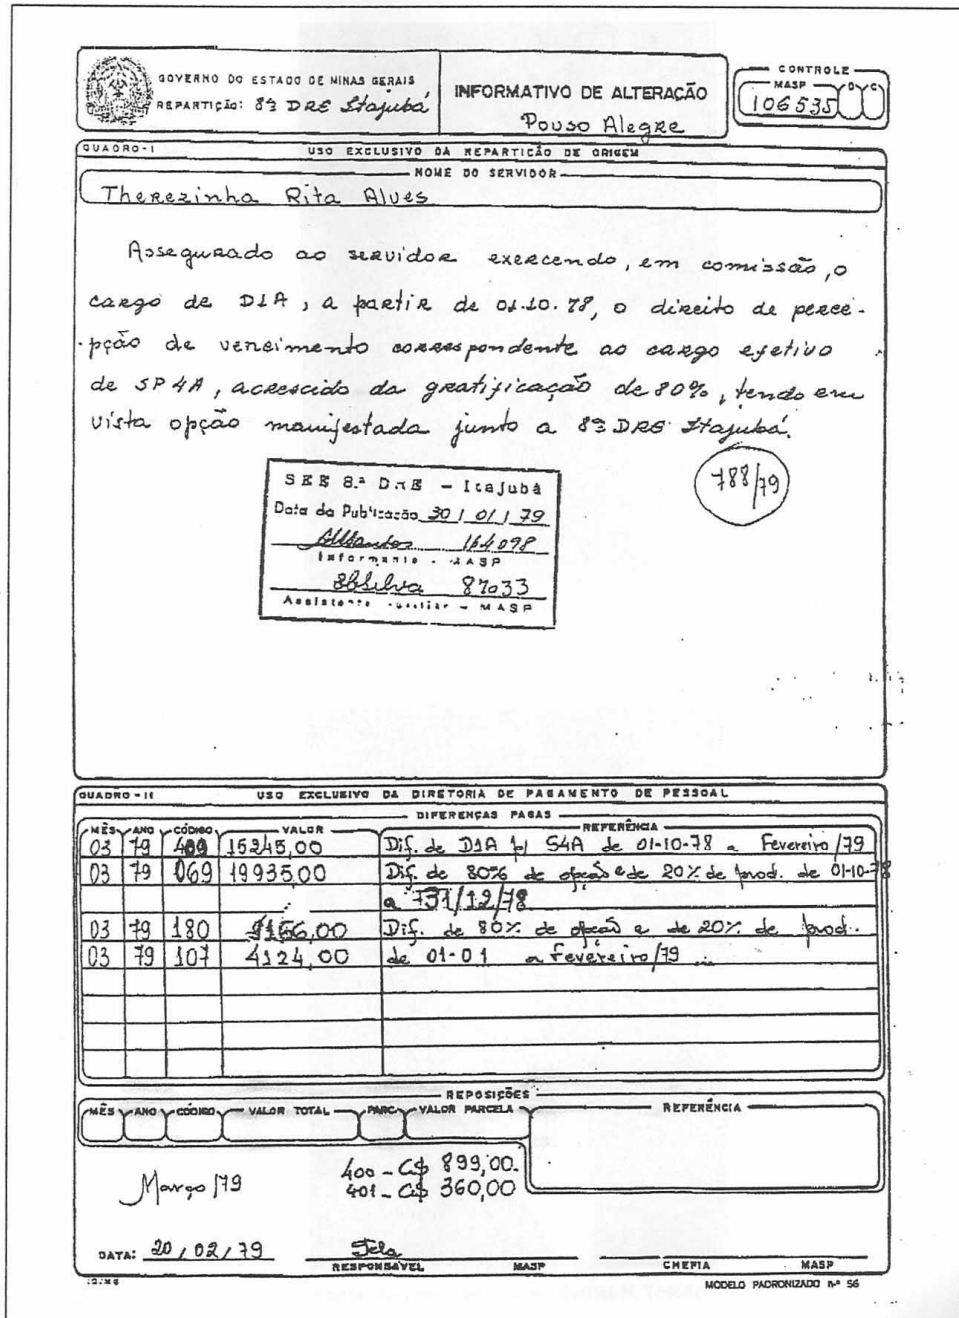 GOVERNO DO ESTADO DE MINAS GERAIS
REPARTIÇÃO: 8ª DRE Itajubá
INFORMATIVO DE ALTERAÇÃO
Pouso Alegre
CONTROLE
MASP D C
106535
QUADRO-I USO EXCLUSIVO DA REPARTIÇÃO DE ORIGEM
NOME DO SERVIDOR
Therezinha Rita Alves
Assegurado ao servidor exercendo, em comissão, o
cargo de D1A, a partir de 01.10.78, o direito de perce-
pção de vencimento correspondente ao cargo efetivo
de SP4A, acrescido da gratificação de 80%, tendo em
vista opção manifestada junto a 8ª DRE Itajubá.
788/79
SEE 8.ª DRE - Itajubá
Data da Publicação 30/01/79
164098
Informante - MASP
87033
Assistente Auxiliar - MASP
QUADRO-II USO EXCLUSIVO DA DIRETORIA DE PAGAMENTO DE PESSOAL
DIFERENÇAS PAGAS
MÊS ANO CÓDIGO VALOR REFERÊNCIA
03 79 15245,00 Dif. de D1A p/ S4A de 01-10-78 a Fevereiro/79
03 79 069 19935,00 Dif. de 80% de opção e de 20% de prod. de 01-10-78
a 31/12/78
03 79 180 Dif. de 80% de opção e de 20% de prod.
03 79 107 4124,00 de 01-01 a Fevereiro/79
REPOSIÇÕES
MÊS ANO CÓDIGO VALOR TOTAL PARC. VALOR PARCELA REFERÊNCIA
Março/79
400 - Cr$ 899,00
401 - Cr$ 360,00
DATA: 20/02/79
RESPONSÁVEL MASP CHEFIA MASP
MODELO PADRONIZADO nº 56